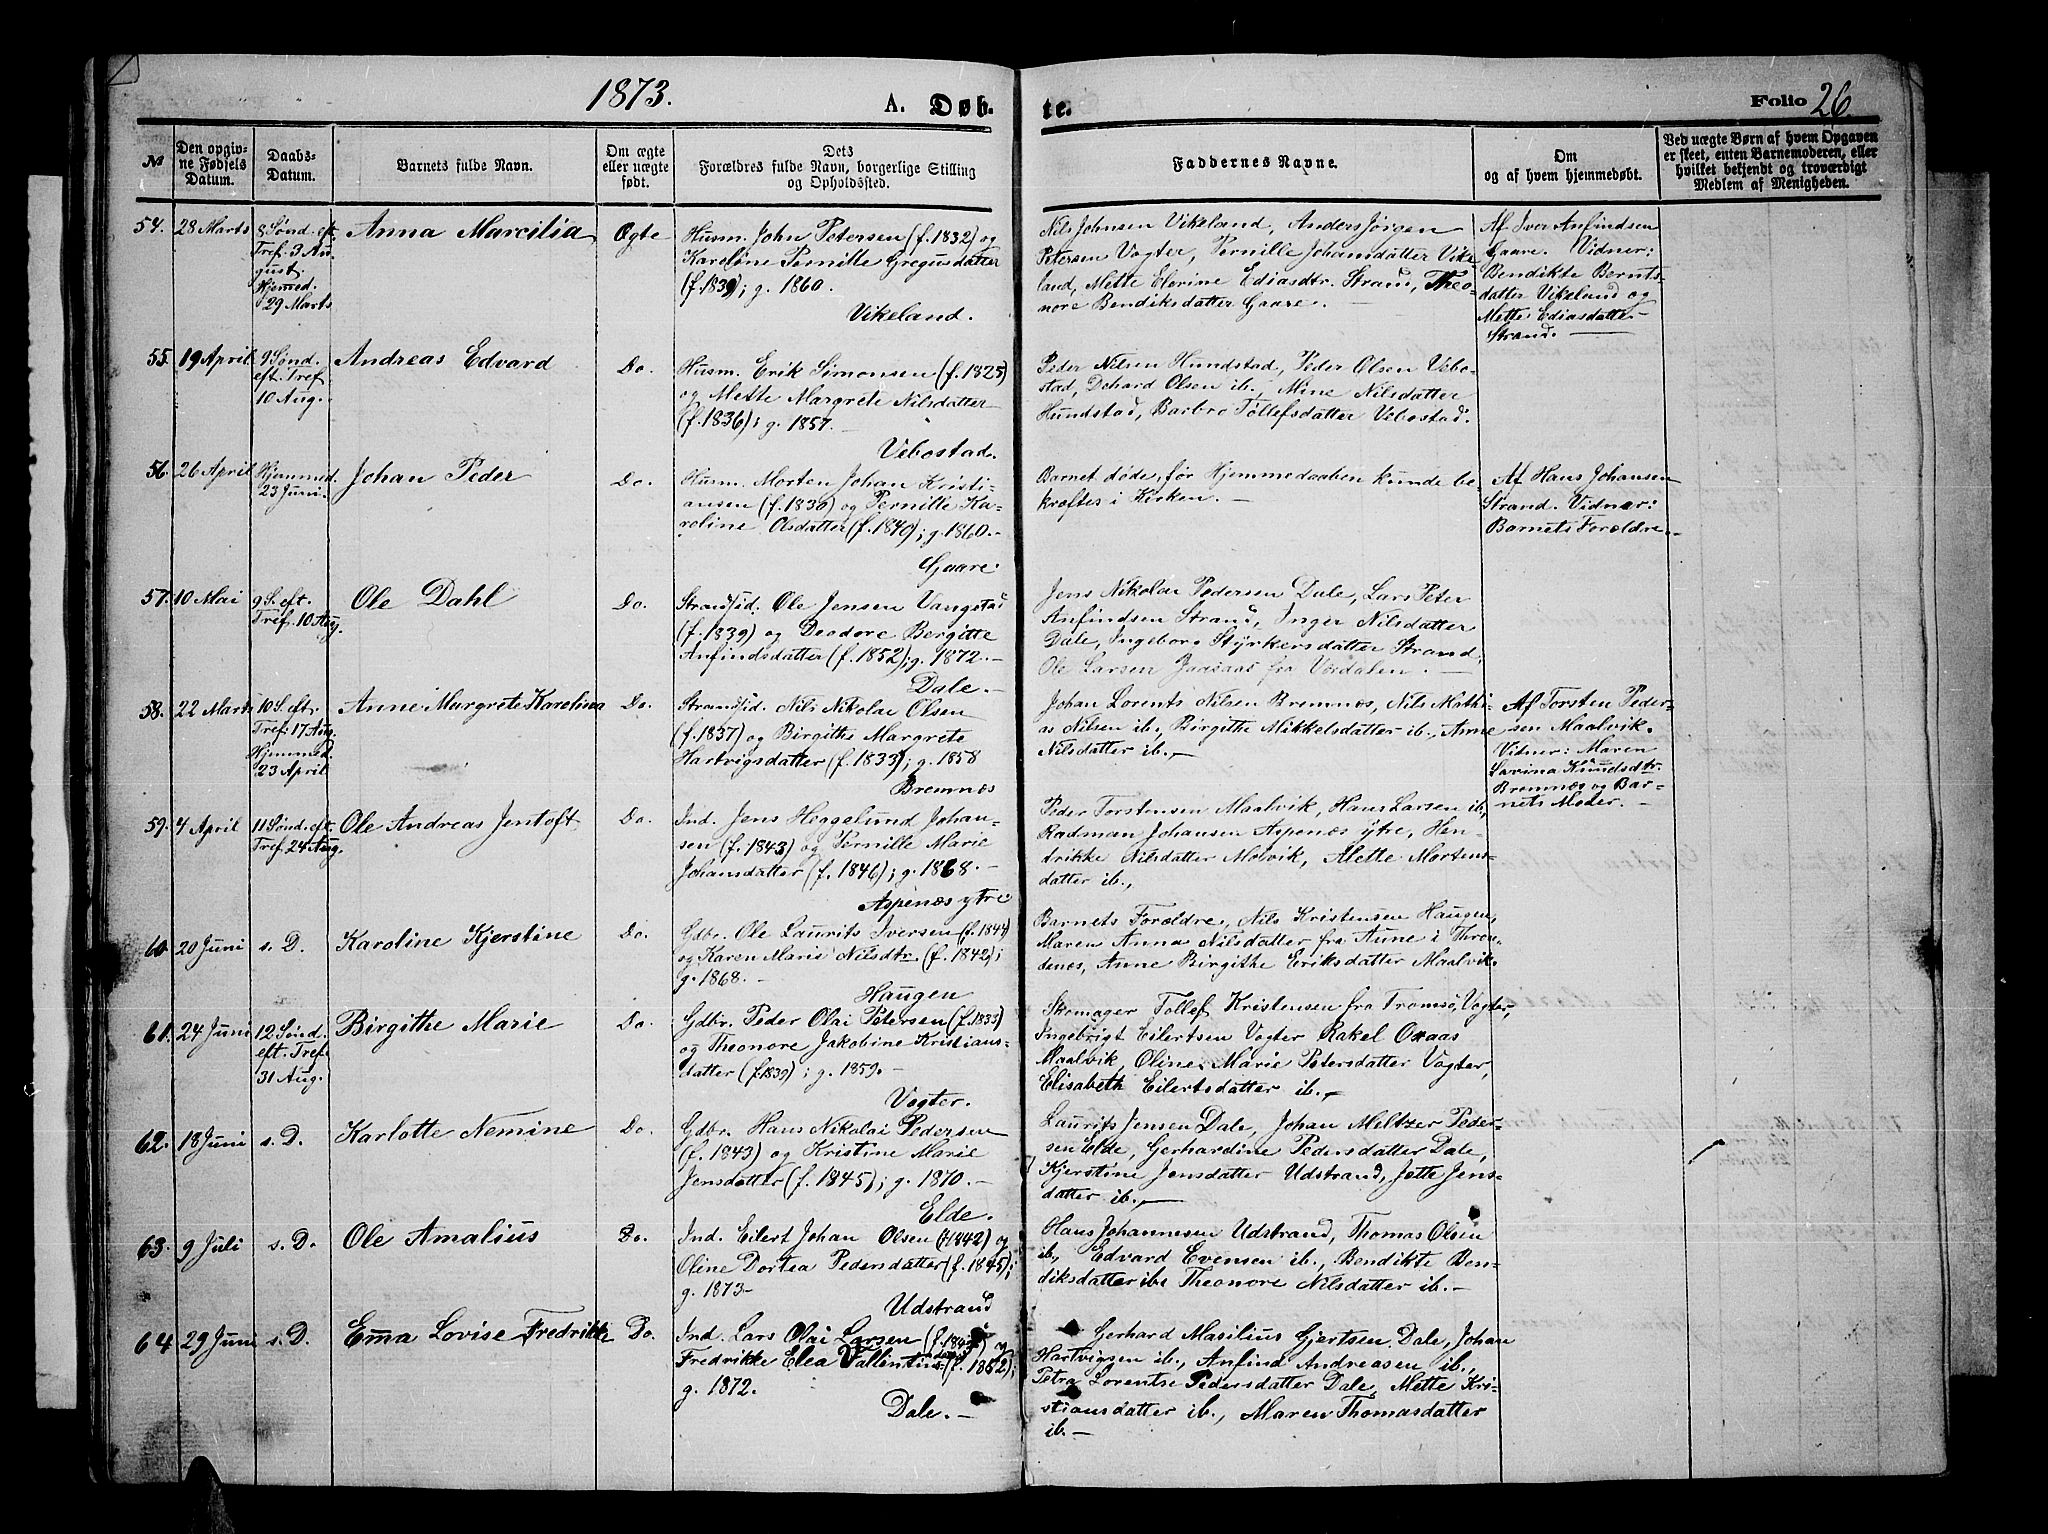 1873. A. Døbte. Folio 26.
№
Den opgiv-
ne Fødsels
Datum.
Daabs-
Datum.
Barnets fulde Navn.
Om ægte
eller uægte
født.
Dets
Forældres fulde Navn, borgerlige Stilling
og Opholdssted.
Faddernes Navne.
Om
og af hvem hjemmedøbt.
Ved uægte Børn af hvem Opgaven
er skeet, enten Barnemoderen, eller
hvilket bekjendt og troværdigt
Medlem af Menigheden.
54. 28 Marts
8 Sønd. eft.
Tref. 3 Au-
gust.
Hjemmed.
29 Marts
Anna Marcilia
Ægte
Husm. John Petersen (f. 1832) og
Karoline Pernille Gregusdatter
(f. 1839); g. 1860.
Vikeland.
Nils Johnsen Vikeland, Anders Jørgen
Petersen Vogter, Pernille Johansdatter Vike-
land, Mette Elerine Ediasdtr. Strand, Theo-
nore Bendiksdatter Gaare. —
Af Iver Anfindsen
Gaare. Vidner:
Bendikte Bernts-
datter Vikeland og
Mette Ediasdatter
Strand. —
55. 19 April
9 Sønd.
eft. Tref.
10 Aug.
Andreas Edvard
Do.
Husm. Erik Simonsen (f. 1825)
og Mette Margrete Nilsdatter
(f. 1836); g. 1857. —
Vebostad.
Peder Nilsen Hundstad, Peder Olsen Vebo-
stad, Dehard Olsen ib. Mine Nilsdatter
Hundstad, Barbro Tollefsdatter Vebostad.
56. 26 April
Hjemmed.
23 Juni.
Johan Peder
Do.
Husm. Morten Johan Kristi-
ansen (f. 1830) og Pernille Ka-
roline Olsdatter (f. 1840); g. 1860. —
Gaare.
Barnet døde, før Hjemmedaaben kunde be-
kræftes i Kirken. —
Af Hans Johansen
Strand. Vidner:
Barnets Forældre. —
57. 10 Mai
9 S. eft.
Tref. 10 Aug.
Ole Dahl
Do.
Strandsid. Ole Jensen Vangstad
(f. 1839) og Deodore Bergitte
Anfindsdatter (f. 1852); g. 1872. —
Dale. —
Jens Nikolai Pedersen Dale, Lars Peter
Anfindsen Strand, Inger Nilsdatter
Dale, Ingeborg Styrkersdatter Strand,
Ole Larsen Jaasaas fra Vordalen. —
58. 22 Marts
10 S. eft.
Tref. 17 Aug.
Hjemmed.
23 April
Anne Margrete Karolina
Do.
Strandsid. Nils Nikolai Olsen
(f. 1837) og Birgithe Margrete
Hartvigsdatter (f. 1833); g. 1858
Bremnæs
Johan Lorents Nilsen Bremnæs, Nils Mathi-
as Nilsen ib., Birgithe Mikkelsdatter ib., Anne
Nilsdatter ib., —
Af Torsten Peder-
sen Maalvik.
Vidner: Maren
Lavina Knudsdtr.
Bremnæs og Bar-
nets Moder. —
59. 4 April
11 Sønd. eft.
Tref. 24 Aug.
Ole Andreas Jentoft
Do.
Ind. Jens Heggelund Johan-
sen (f. 1843) og Pernille Marie
Johansdatter (f. 1846); g. 1868. —
Aspenæs ytre
Peder Torstensen Maalvik, Hans Larsen ib,
Radman Johansen Aspenæs ytre, Hen-
drikke Nilsdatter Molvik, Mette Mortens-
datter ib.,
60. 20 Juni
s. D.
Karoline Kjerstine
Do.
Gdbr. Ole Laurits Iversen (f. 1844)
og Karen Marie Nilsdtr. (f. 1842);
g. 1868. —
Haugen
Barnets Forældre, Nils Kristensen Haugen,
Maren Anna Nilsdatter fra Aune i Thron-
denæs, Anne Birgithe Eriksdatter Maalvik.
61. 24 Juni
12 Sønd.
eft. Tref.
31 Aug.
Birgithe Marie
Do.
Gdbr. Peder Olai Petersen (f. 1833)
og Theonore Jakobine Kristians-
datter (f. 1839); g. 1859. —
Vogter.
Skomager Tollef Kristensen fra Tromsø, Vogter,
Ingebrigt Eilertsen Vogter Rakel Oxaas
Maalvik, Oline Marie Petersdatter Vogter,
Elisabeth Eilertsdatter ib. —
62. 18 Juni
s. D.
Karlotte Nemine
Do.
Gdbr. Hans Nikolai Pedersen
(f. 1843) og Kristine Marie
Jensdatter (f. 1845); g. 1870. —
Elde.
Laurits Jensen Dale, Johan Meltzer Peder-
sen Elde, Gerhardine Pedersdatter Dale,
Kjerstine Jensdatter Udstrand, Jette Jens-
datter ib. —
63. 9 Juli
s. D.
Ole Amalius
Do.
Ind. Eilert Johan Olsen (f. 1842) og
Oline Dortea Pedersdatter (f. 1845);
g. 1873 —
Udstrand
Hans Johannesen Udstrand, Thomas Olsen
ib., Edvard Evensen ib., Bendikte Ben-
diksdatter ib. Theonore Nilsdatter ib. —
64. 29 Juni
s. D.
Emma Lovise Fredrikke
Do.
Ind. Lars Olai Larsen (f. 1843) og
Fredrikke Elea Vallentins- (f. 1852);
g. 1872.
Dale. —
Gerhard Masilius Gjertsen Dale, Johan
Hartvigsen ib., Anfind Andreasen ib.,
Petra Lorentse Pedersdatter Dale, Mette Kri-
stiansdatter ib., Maren Thomasdatter
ib. —